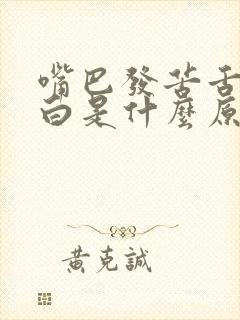 嘴巴發苦舌
白是什麼原
黃克誠